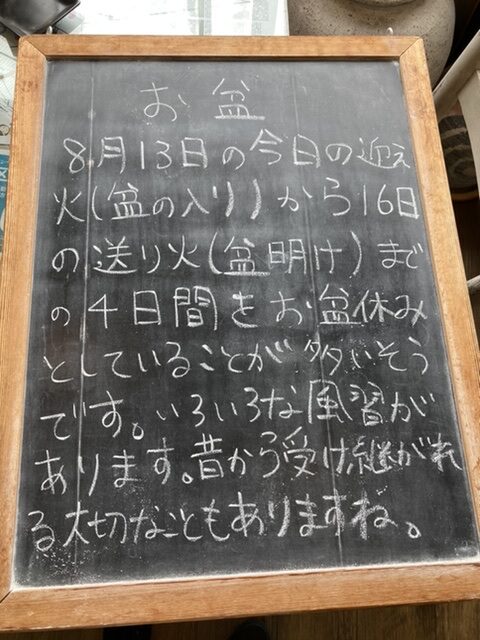 お盆
8月13日の今日の迎え
火(盆の入り)から16日
の送り火(盆明け)まで
の4日間をお盆休み
としていることが多いそう
です。いろいろな風習が
あります。昔から受け継がれ
る大切なこともありますね。